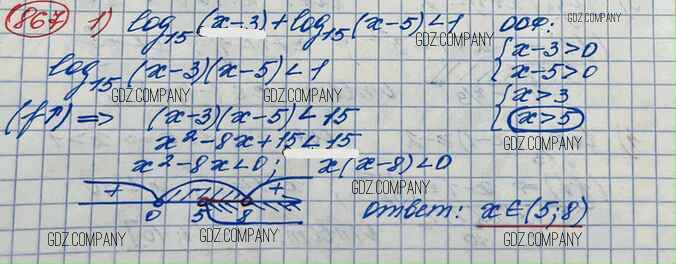 867 1) log₁₅(x-3)+log₁₅(x-5)<1 ООФ:
GDZ.COMPANY GDZ.COMPANY
{x-3>0
x-5>0
log₁₅(x-3)(x-5)<1
GDZ.COMPANY GDZ.COMPANY GDZ.COMPANY
{x>3
x>5
(f↑) => (x-3)(x-5)<15
x²-8x+15<15
GDZ.COMPANY
x²-8x<0; x(x-8)<0
GDZ.COMPANY
+ +
0 5 8
ответ: x∈(5;8)
GDZ.COMPANY GDZ.COMPANY GDZ.COMPANY GDZ.COMPANY